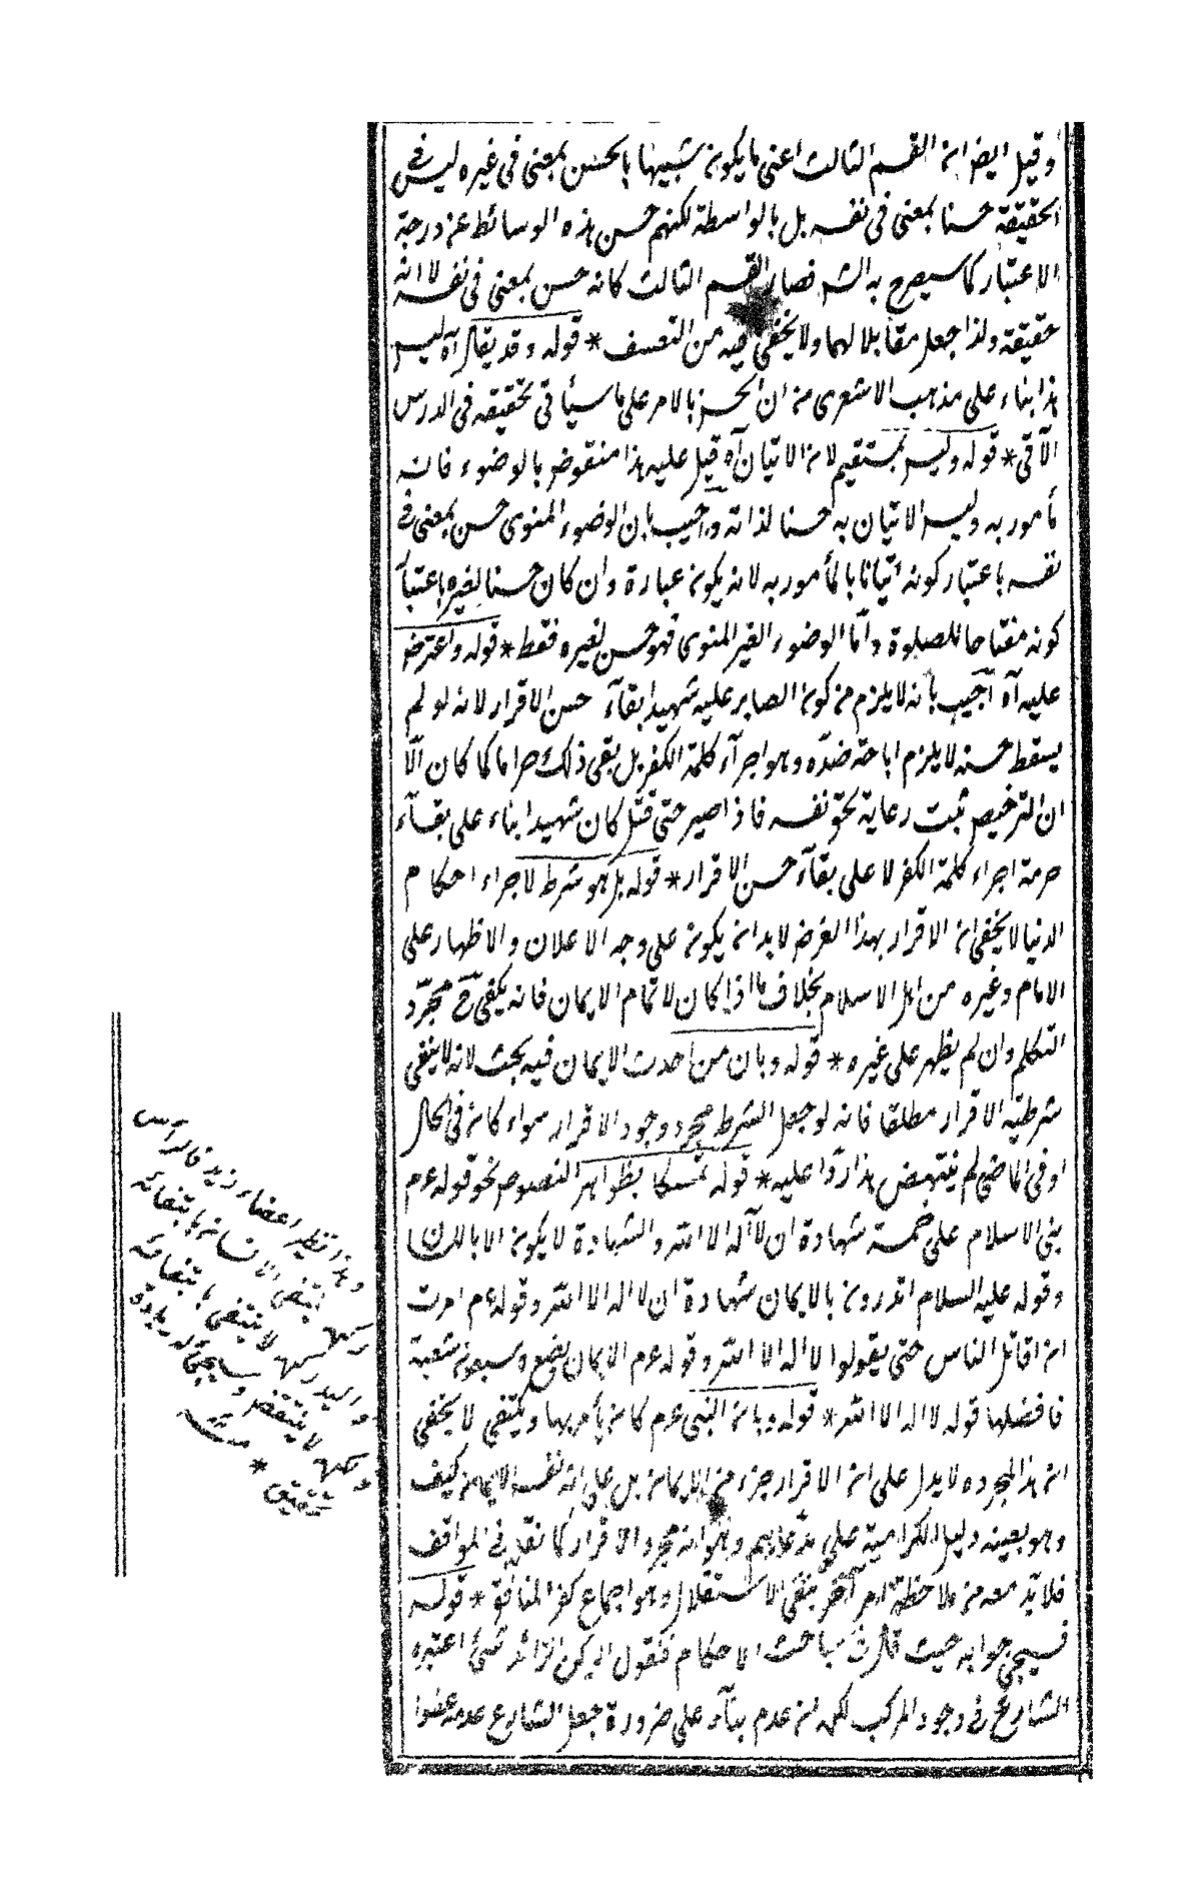 وقيل ايضا ان القسم الثالث اعنى ما يكون شبيها بالحسن بمعنى فى غيره ليس فى
الحقيقة حسنا بمعنى فى نفسه بل بالواسطة لكنهم حسن هذه الوسائط عن درجة
الاعتبار كما سيصرح به الشر فصار القسم الثالث كانه حسن بمعنى فى نفسه لا انه
حقيقة ولذا جعل مقابلا لهما ولا يخفى فيه من التعسف * قوله وقد يقال آه ليس
هذا بناء على مذهب الاشعرى من ان الحسن بالامر على ما سيأتى تحقيقه فى الدرس
الآتى * قوله وليس بمستقيم لان الاتيان آه قيل عليه هذا منقوض بالوضوء فانه
مأمور به وليس الاتيان به حسنا لذاته واجيب بان الوضوء المنوى حسن بمعنى فى
نفسه باعتبار كونه اتيانا بالمأمور به لانه يكون عبادة وان كان حسنا لغيره باعتبار
كونه مفتاحا للصلوة واما الوضوء الغير المنوى فهو حسن لغيره فقط * قوله واعترض
عليه آه اجيب بانه لا يلزم من كون الصابر عليه شهيدا بقآء حسن الاقرار لانه لو لم
يسقط حسنه لا يلزم اباحة ضدّه وهو اجرآء كلمة الكفر بل بقى ذلك حراما كما كان الّا
ان الترخيص ثبت رعاية لحق نفسه فاذا صبر حتى قتل كان شهيدا بناء على بقآء
حرمة اجراء كلمة الكفر لا على بقآء حسن الاقرار * قوله بل هو شرط لاجراء احكام
الدنيا لا يخفى ان الاقرار بهذا الغرض لابد ان يكون على وجه الاعلان والاظهار على
الامام وغيره من اهل الاسلام بخلاف ما اذا كان لاتمام الايمان فانه يكفى ح مجرّد
التكلم وان لم يظهر على غيره * قوله وبان من احدث الايمان فيه بحث لانه لا ينفى
شرطيّة الاقرار مطلقا فانه لو جعل الشرط مجرد وجود الاقرار سواء كان فى الحال
او فى الماضى لم ينتهض هذا ردّا عليه * قوله تمسكا بظواهر النصوص نحو قوله عم
بنى الاسلام على خمسة شهادة ان لا آله الا الله والشهادة لا يكون الا باللسان
وقوله عليه السلام اتدرون بالايمان شهادة ان لا اله الا الله وقوله عم امرت
ان اقاتل الناس حتى يقولوا لا اله الا الله وقوله عم الايمان بضع وسبعون شعبة
فافضلها قوله لا اله الا الله * قوله وبان النبى عم كان يأمر بها ويكتفى لا يخفى
ان هذا المجرده لا يدل على ان الاقرار جزء من الايمان بل على انه نفس الايمان كيف
وهو بعينه دليل الكرامية على مدعاهم وهو انه مجرد الاقرار كما نقل فى المواقف
فلا بد معه من ملاحظة امر آخر ينفى الاستقلال وهو اجماع كفر المنافق * قوله
فسيجئ جوابه حيث قال فى مباحث الاحكام فنقول الركن الزائد شئ اعتبره
الشارع فى وجود المركب لكن ان عدم بنآء على ضرورة جعل الشارع عدمه عفوا
وهذا نظير اعضاء زيد فالرأس
ينتفى الانسان بانتفائه
واليد ركن لا ينتفى بانتفائه
لا ينتقض وسيجئ له زيادة
تحقيق *